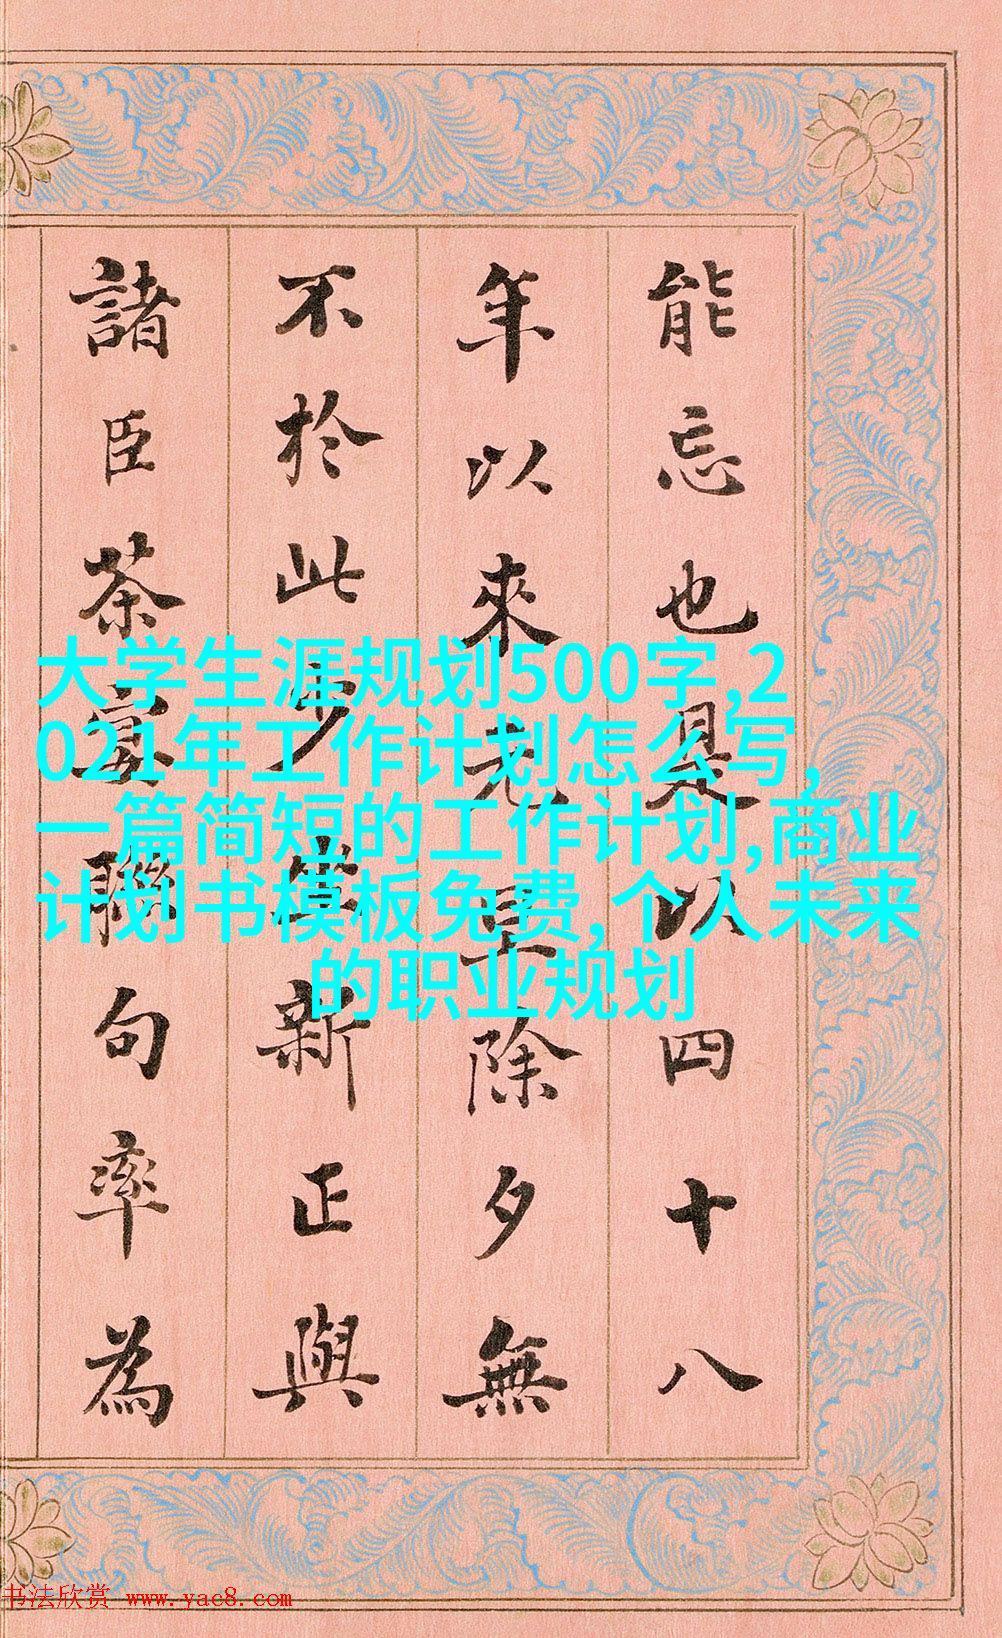 能忘也是以四十八
年以來老除夕無
不於此少新正與
諸臣茶宴聯句率為
大学生涯规划500字,2
021年工作计划怎么写,
一篇简短的工作计划,商业
计划书模板免费,个人未来
的职业规划
书法欣赏 www.yac8.com